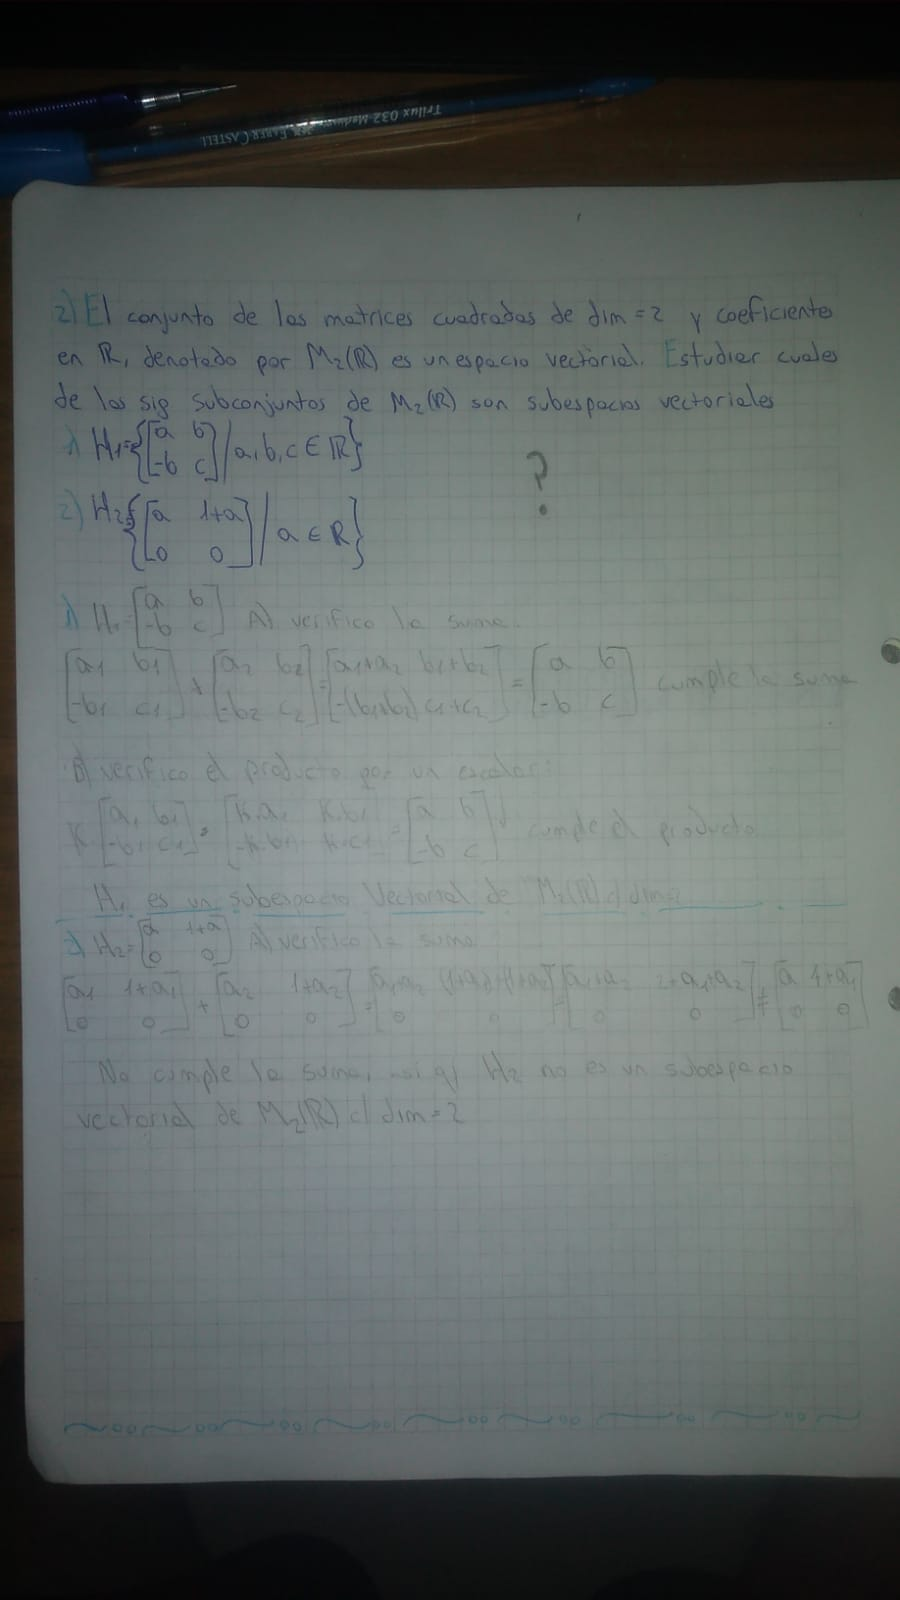 Trilux 032 Medium
FABER CASTELL
2) El conjunto de las matrices cuadradas de dim = 2 y coeficiente
en ℝ, denotado por M₂(ℝ) es un espacio vectorial. Estudiar cuales
de los sig subconjuntos de M₂(ℝ) son subespacios vectoriales
1) H₁={[a b; -b c] / a, b, c ∈ ℝ}
?
2) H₂{[a 1+a; 0 0] / a ∈ ℝ}
1) H₁=[a b; -b c] A) verifico la suma.
[a₁ b₁; -b₁ c₁] + [a₂ b₂; -b₂ c₂] = [a₁+a₂ b₁+b₂; -(b₁+b₂) c₁+c₂] = [a b; -b c] cumple la suma
B) verifico el producto por un escalar:
K [a₁ b₁; -b₁ c₁] = [K.a₁ K.b₁; -K.b₁ K.c₁] = [a b; -b c] cumple el producto
H₁ es un subespacio Vectorial de M₂(ℝ) d dim=2
2) H₂=[a 1+a; 0 0] A) verifico la suma
[a₁ 1+a₁; 0 0] + [a₂ 1+a₂; 0 0] = [a₁+a₂ (1+a₁)+(1+a₂); 0 0] = [a₁+a₂ 2+a₁+a₂; 0 0] ≠ [a 1+a; 0 0]
No cumple la suma, así q' H₂ no es un subespacio
vectorial de M₂(ℝ) d dim=2